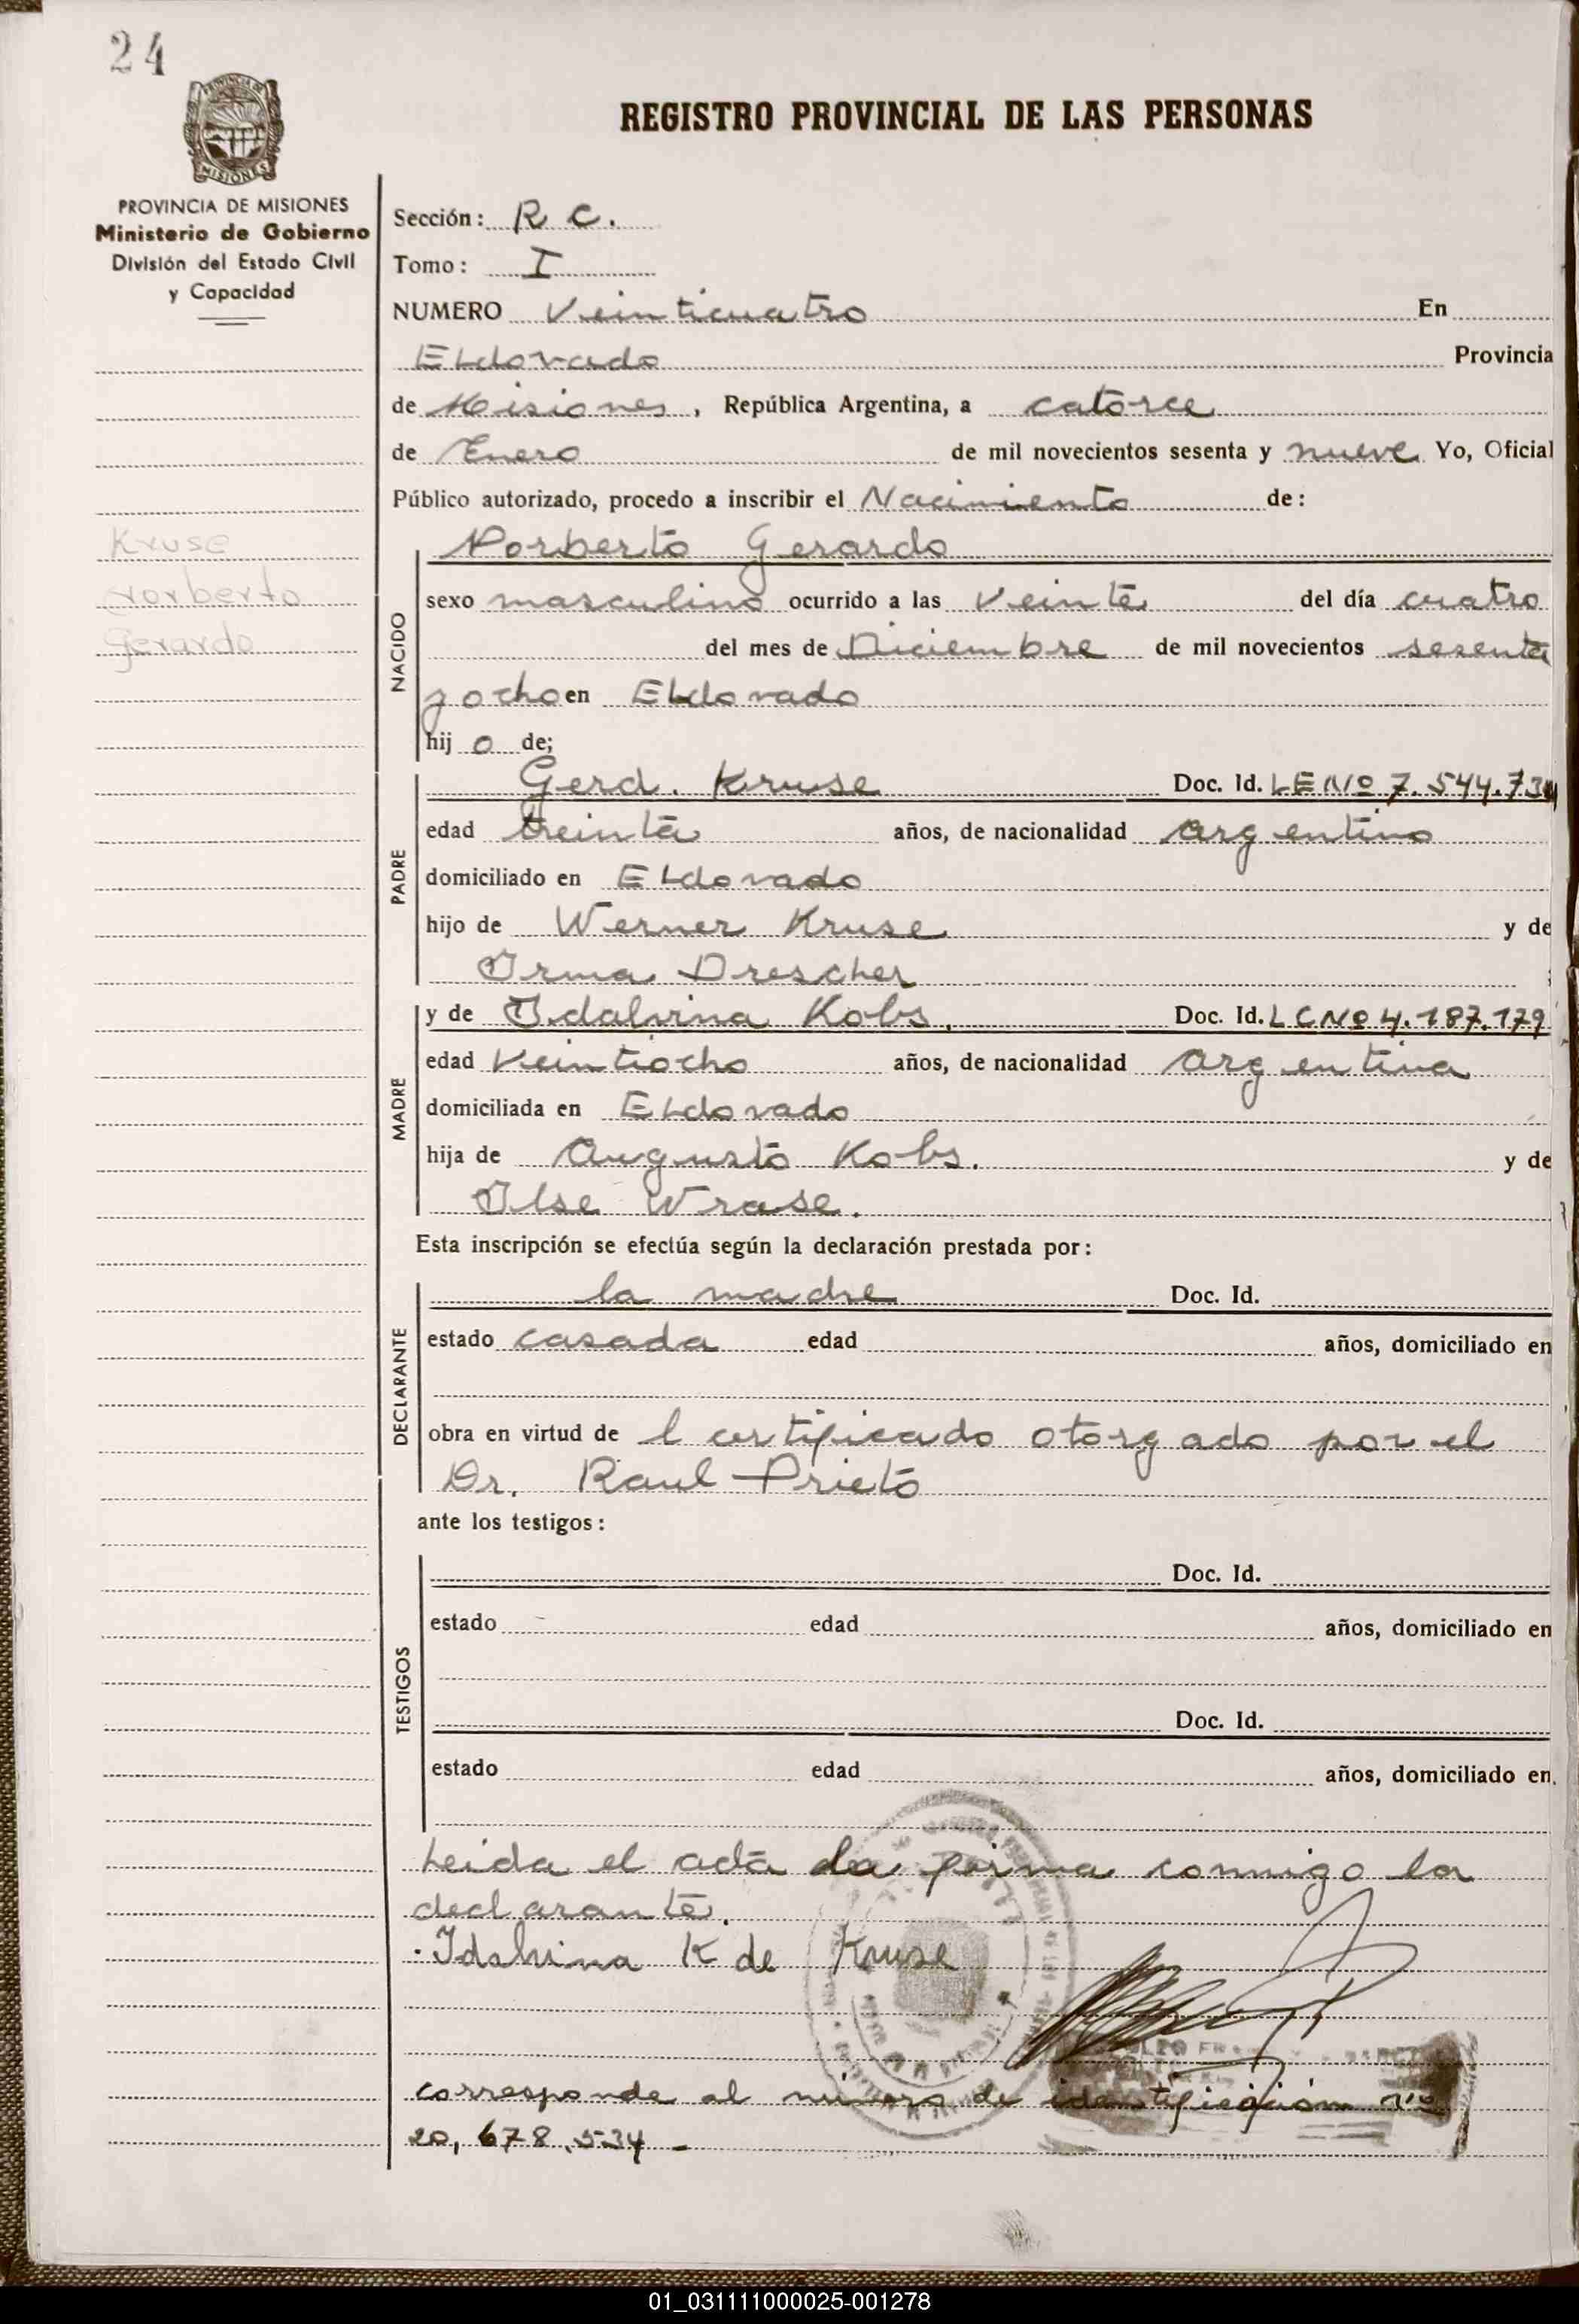 24
PROVINCIA DE MISIONES
Ministerio de Gobierno
División del Estado Civil
y Capacidad
REGISTRO PROVINCIAL DE LAS PERSONAS
Sección: R C.
Tomo: I
NUMERO Veinticuatro En
ELdorado Provincia
de Misiones, República Argentina, a catorce
de Enero de mil novecientos sesenta y nueve Yo, Oficial
Público autorizado, procedo a inscribir el Nacimiento de:
Kruse
Norberto
Gerardo
NACIDO
Norberto Gerardo
sexo masculino ocurrido a las Veinte del día cuatro
del mes de Diciembre de mil novecientos sesenta
y ocho en ELdorado
hij o de;
PADRE
Gerd. Kruse Doc. Id. LE Nº 7.544.734
edad treinta años, de nacionalidad argentino
domiciliado en ELdorado
hijo de Werner Kruse y de
Irma Drescher ;
MADRE
y de Idalvina Kobs. Doc. Id. LC Nº 4.187.179
edad Veintiocho años, de nacionalidad argentina
domiciliada en ELdorado
hija de Augusto Kobs. y de
Ilse Wrase.
Esta inscripción se efectúa según la declaración prestada por:
DECLARANTE
la madre Doc. Id.
estado casada edad años, domiciliado en
obra en virtud de l certificado otorgado por el
Dr. Raul Prieto
ante los testigos:
TESTIGOS
Doc. Id.
estado edad años, domiciliado en
Doc. Id.
estado edad años, domiciliado en.
Leida el acta la firma conmigo la
declarante.
Idalvina K de Kruse
corresponde al número de identificación nº
20,678.534 -
01_031111000025-001278